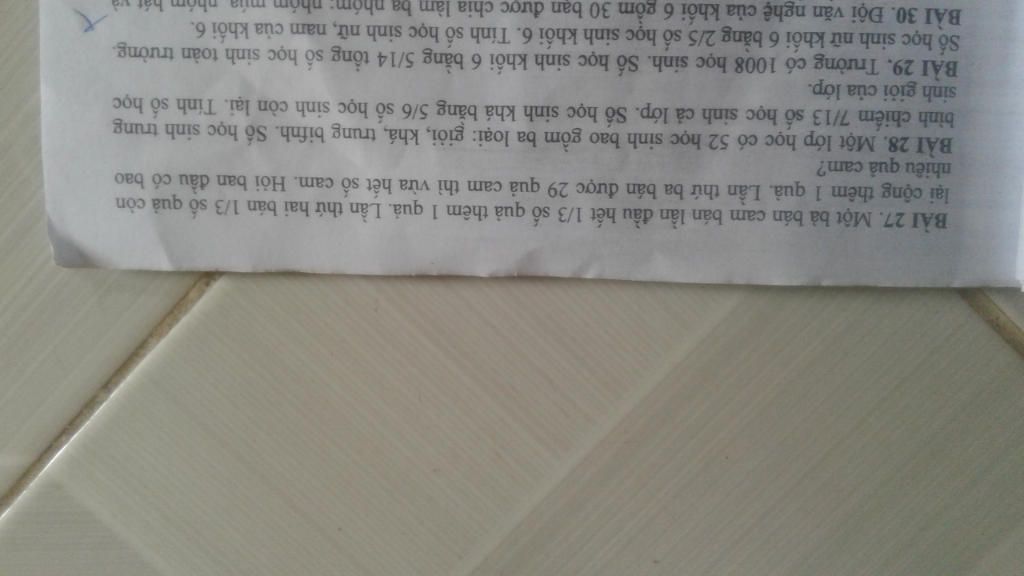 BÀI 27. Một bà bán cam bán lần đầu hết 1/3 số quả thêm 1 quả. Lần thứ hai bán 1/3 số quả còn
lại cộng thêm 1 quả. Lần thứ ba bán được 29 quả cam thì vừa hết số cam. Hỏi ban đầu có bao
nhiêu quả cam?
BÀI 28. Một lớp học có 52 học sinh bao gồm ba loại: giỏi, khá, trung bifnh. Số học sinh trung
bình chiếm 7/13 số học sinh cả lớp. Số học sinh khá bằng 5/6 số học sinh còn lại. Tính số học
sinh giỏi của lớp.
BÀI 29. Trường có 1008 học sinh. Số học sinh khối 6 bằng 5/14 tổng số học sinh toàn trường.
Số học sinh nữ khối 6 bằng 2/5 số học sinh khối 6. Tính số học sinh nữ, nam của khối 6.
BÀI 30. Đội văn nghệ của khối 6 gồm 30 bạn được chia làm ba nhóm: nhóm múa, nhóm hát và